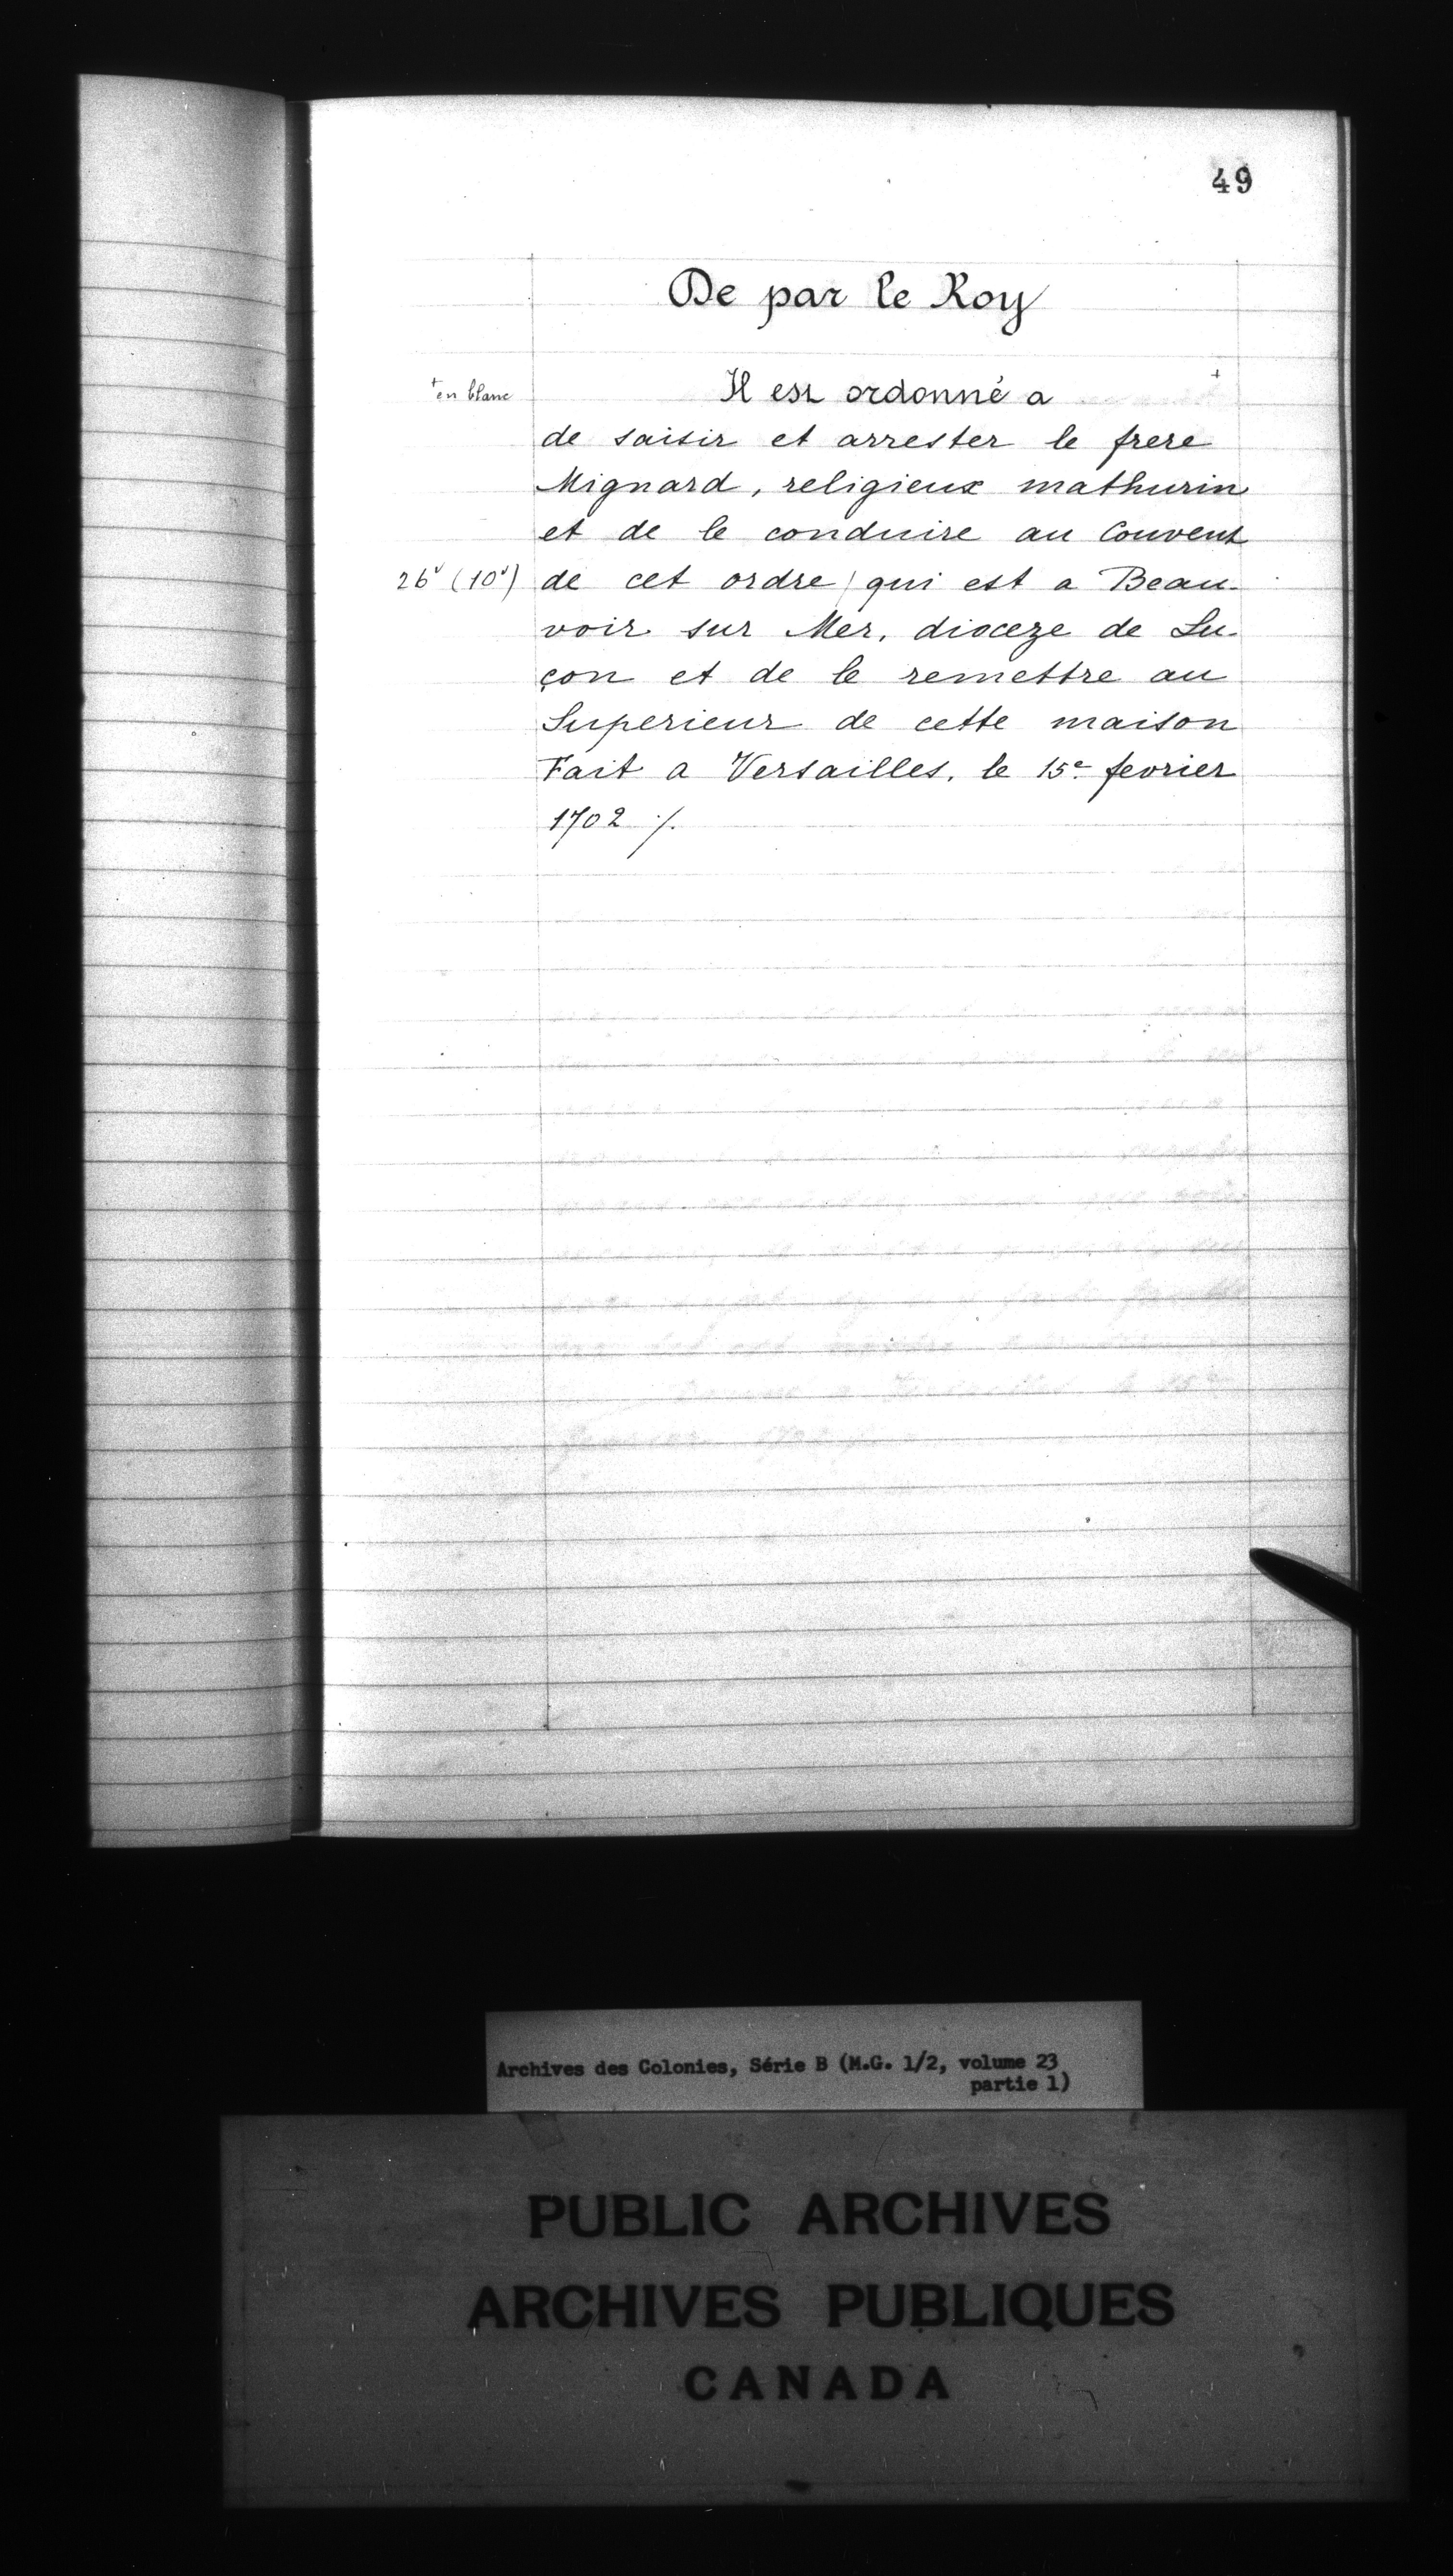 49
De par le Roy
+ en blanc
Il est ordonné a +
de saisir et arrester le frere
Mignard, religieux mathurin
et de le conduire au Couvent
26v (10v) de cet ordre / qui est a Beau-
voir sur Mer, dioceze de Lu-
çon et de le remettre au
Superieur de cette maison
Fait a Versailles, le 15e fevrier
1702 ./.
Archives des Colonies, Série B (M.G. 1/2, volume 23
partie 1)
PUBLIC ARCHIVES
ARCHIVES PUBLIQUES
CANADA